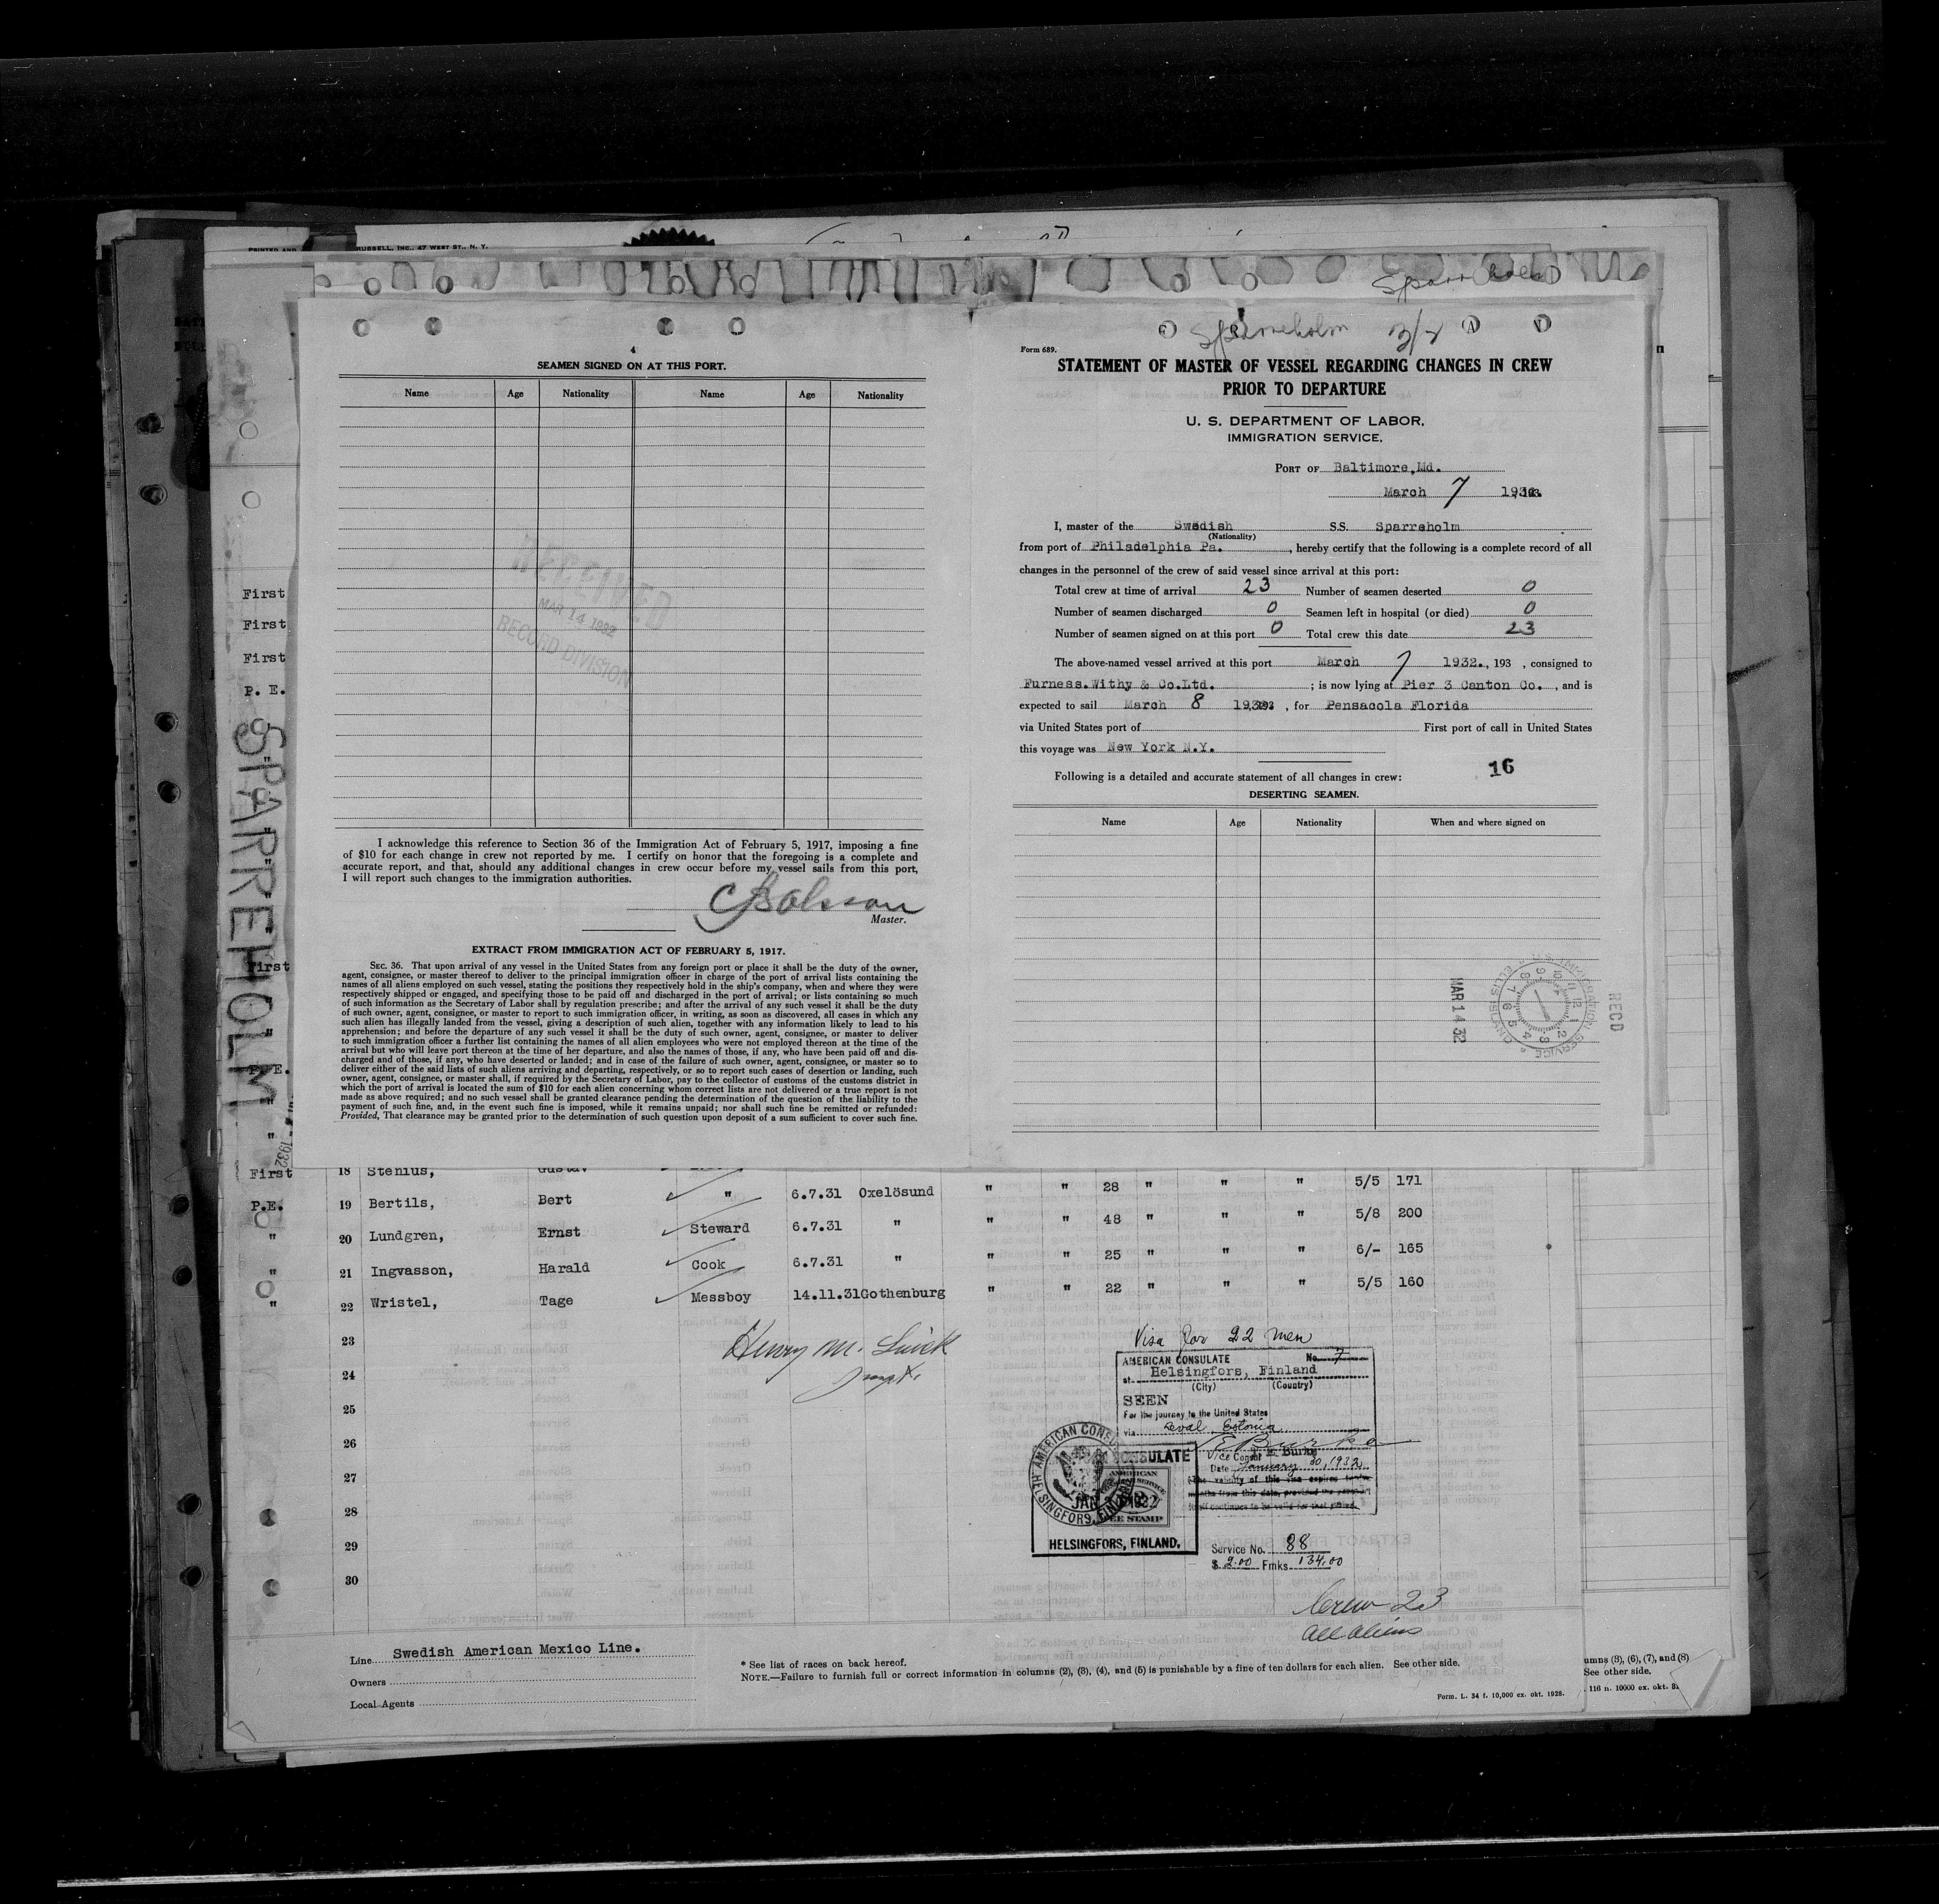 PRINTED AND
RUSSELL, INC., 47 WEST ST., N. Y.
Sparreholm
4
SEAMEN SIGNED ON AT THIS PORT.
Name Age Nationality Name Age Nationality
RECEIVED
MAR 14 1932
RECORD DIVISION
I acknowledge this reference to Section 36 of the Immigration Act of February 5, 1917, imposing a fine
of $10 for each change in crew not reported by me. I certify on honor that the foregoing is a complete and
accurate report, and that, should any additional changes in crew occur before my vessel sails from this port,
I will report such changes to the immigration authorities.
Master.
EXTRACT FROM IMMIGRATION ACT OF FEBRUARY 5, 1917.
SEC. 36. That upon arrival of any vessel in the United States from any foreign port or place it shall be the duty of the owner,
agent, consignee, or master thereof to deliver to the principal immigration officer in charge of the port of arrival lists containing the
names of all aliens employed on such vessel, stating the positions they respectively hold in the ship's company, when and where they were
respectively shipped or engaged, and specifying those to be paid off and discharged in the port of arrival; or lists containing so much
of such information as the Secretary of Labor shall by regulation prescribe; and after the arrival of any such vessel it shall be the duty
of such owner, agent, consignee, or master to report to such immigration officer, in writing, as soon as discovered, all cases in which any
such alien has illegally landed from the vessel, giving a description of such alien, together with any information likely to lead to his
apprehension; and before the departure of any such vessel it shall be the duty of such owner, agent, consignee, or master to deliver
to such immigration officer a further list containing the names of all alien employees who were not employed thereon at the time of the
arrival but who will leave port thereon at the time of her departure, and also the names of those, if any, who have been paid off and dis-
charged and of those, if any, who have deserted or landed; and in case of the failure of such owner, agent, consignee, or master so to
deliver either of the said lists of such aliens arriving and departing, respectively, or so to report such cases of desertion or landing, such
owner, agent, consignee, or master shall, if required by the Secretary of Labor, pay to the collector of customs of the customs district in
which the port of arrival is located the sum of $10 for each alien concerning whom correct lists are not delivered or a true report is not
made as above required; and no such vessel shall be granted clearance pending the determination of the question of the liability to the
payment of such fine, and, in the event such fine is imposed, while it remains unpaid; nor shall such fine be remitted or refunded:
Provided, That clearance may be granted prior to the determination of such question upon deposit of a sum sufficient to cover such fine.
Sparreholm 3/7
Form 689.
STATEMENT OF MASTER OF VESSEL REGARDING CHANGES IN CREW
PRIOR TO DEPARTURE
U. S. DEPARTMENT OF LABOR,
IMMIGRATION SERVICE,
PORT OF Baltimore,Md.
March 7 1932.
I, master of the Swedish S.S. Sparreholm
(Nationality)
from port of Philadelphia Pa. , hereby certify that the following is a complete record of all
changes in the personnel of the crew of said vessel since arrival at this port:
Total crew at time of arrival 23 Number of seamen deserted 0
Number of seamen discharged 0 Seamen left in hospital (or died) 0
Number of seamen signed on at this port 0 Total crew this date 23
The above-named vessel arrived at this port March 7 1932., 193 , consigned to
Furness.Withy & Co.Ltd. ; is now lying at Pier 3 Canton Co. , and is
expected to sail March 8 1932. , for Pensacola Florida
via United States port of First port of call in United States
this voyage was New York N.Y.
Following is a detailed and accurate statement of all changes in crew: 16
DESERTING SEAMEN.
Name Age Nationality When and where signed on
REC'D
IMMIGRATION SERVICE
ELLIS ISLAND
MAR 14 32
First
First
First
P. E.
SPARREHOLM
First
"
P.E.
"
"
1932
First 18 Stenius, Gustav
P.E. 19 Bertils, Bert " 6.7.31 Oxelösund " " 28 " " " 5/5 171
" 20 Lundgren, Ernst Steward 6.7.31 " " " 48 " " " 5/8 200
" 21 Ingvasson, Harald Cook 6.7.31 " " " 25 " " " 6/- 165
" 22 Wristel, Tage Messboy 14.11.31 Gothenburg " " 22 " " " 5/5 160
23
24
25
26
27
28
29
30
Visa for 22 men
AMERICAN CONSULATE No. 7
at Helsingfors, Finland
(City) (Country)
SEEN
For the journey to the United States
via Reval, Estonia
E Burke
Vice Consul
Date January 30, 1932
The validity of this visa expires twelve
months from this date, provided the passport
itself continues to be valid for that period.
AMERICAN CONSULATE
HELSINGFORS, FINLAND
AMERICAN
SERVICE
FEE STAMP
HELSINGFORS, FINLAND.
Service No. 88
$ 2.00 Fmks. 134.00
Crew 23
all aliens
Line Swedish American Mexico Line.
Owners
Local Agents
* See list of races on back hereof.
NOTE.—Failure to furnish full or correct information in columns (2), (3), (4), and (5) is punishable by a fine of ten dollars for each alien. See other side.
Form. L. 34 f. 10,000 ex. okt. 1928.
umns (3), (6), (7), and (8)
See other side.
116 n. 10000 ex. okt.